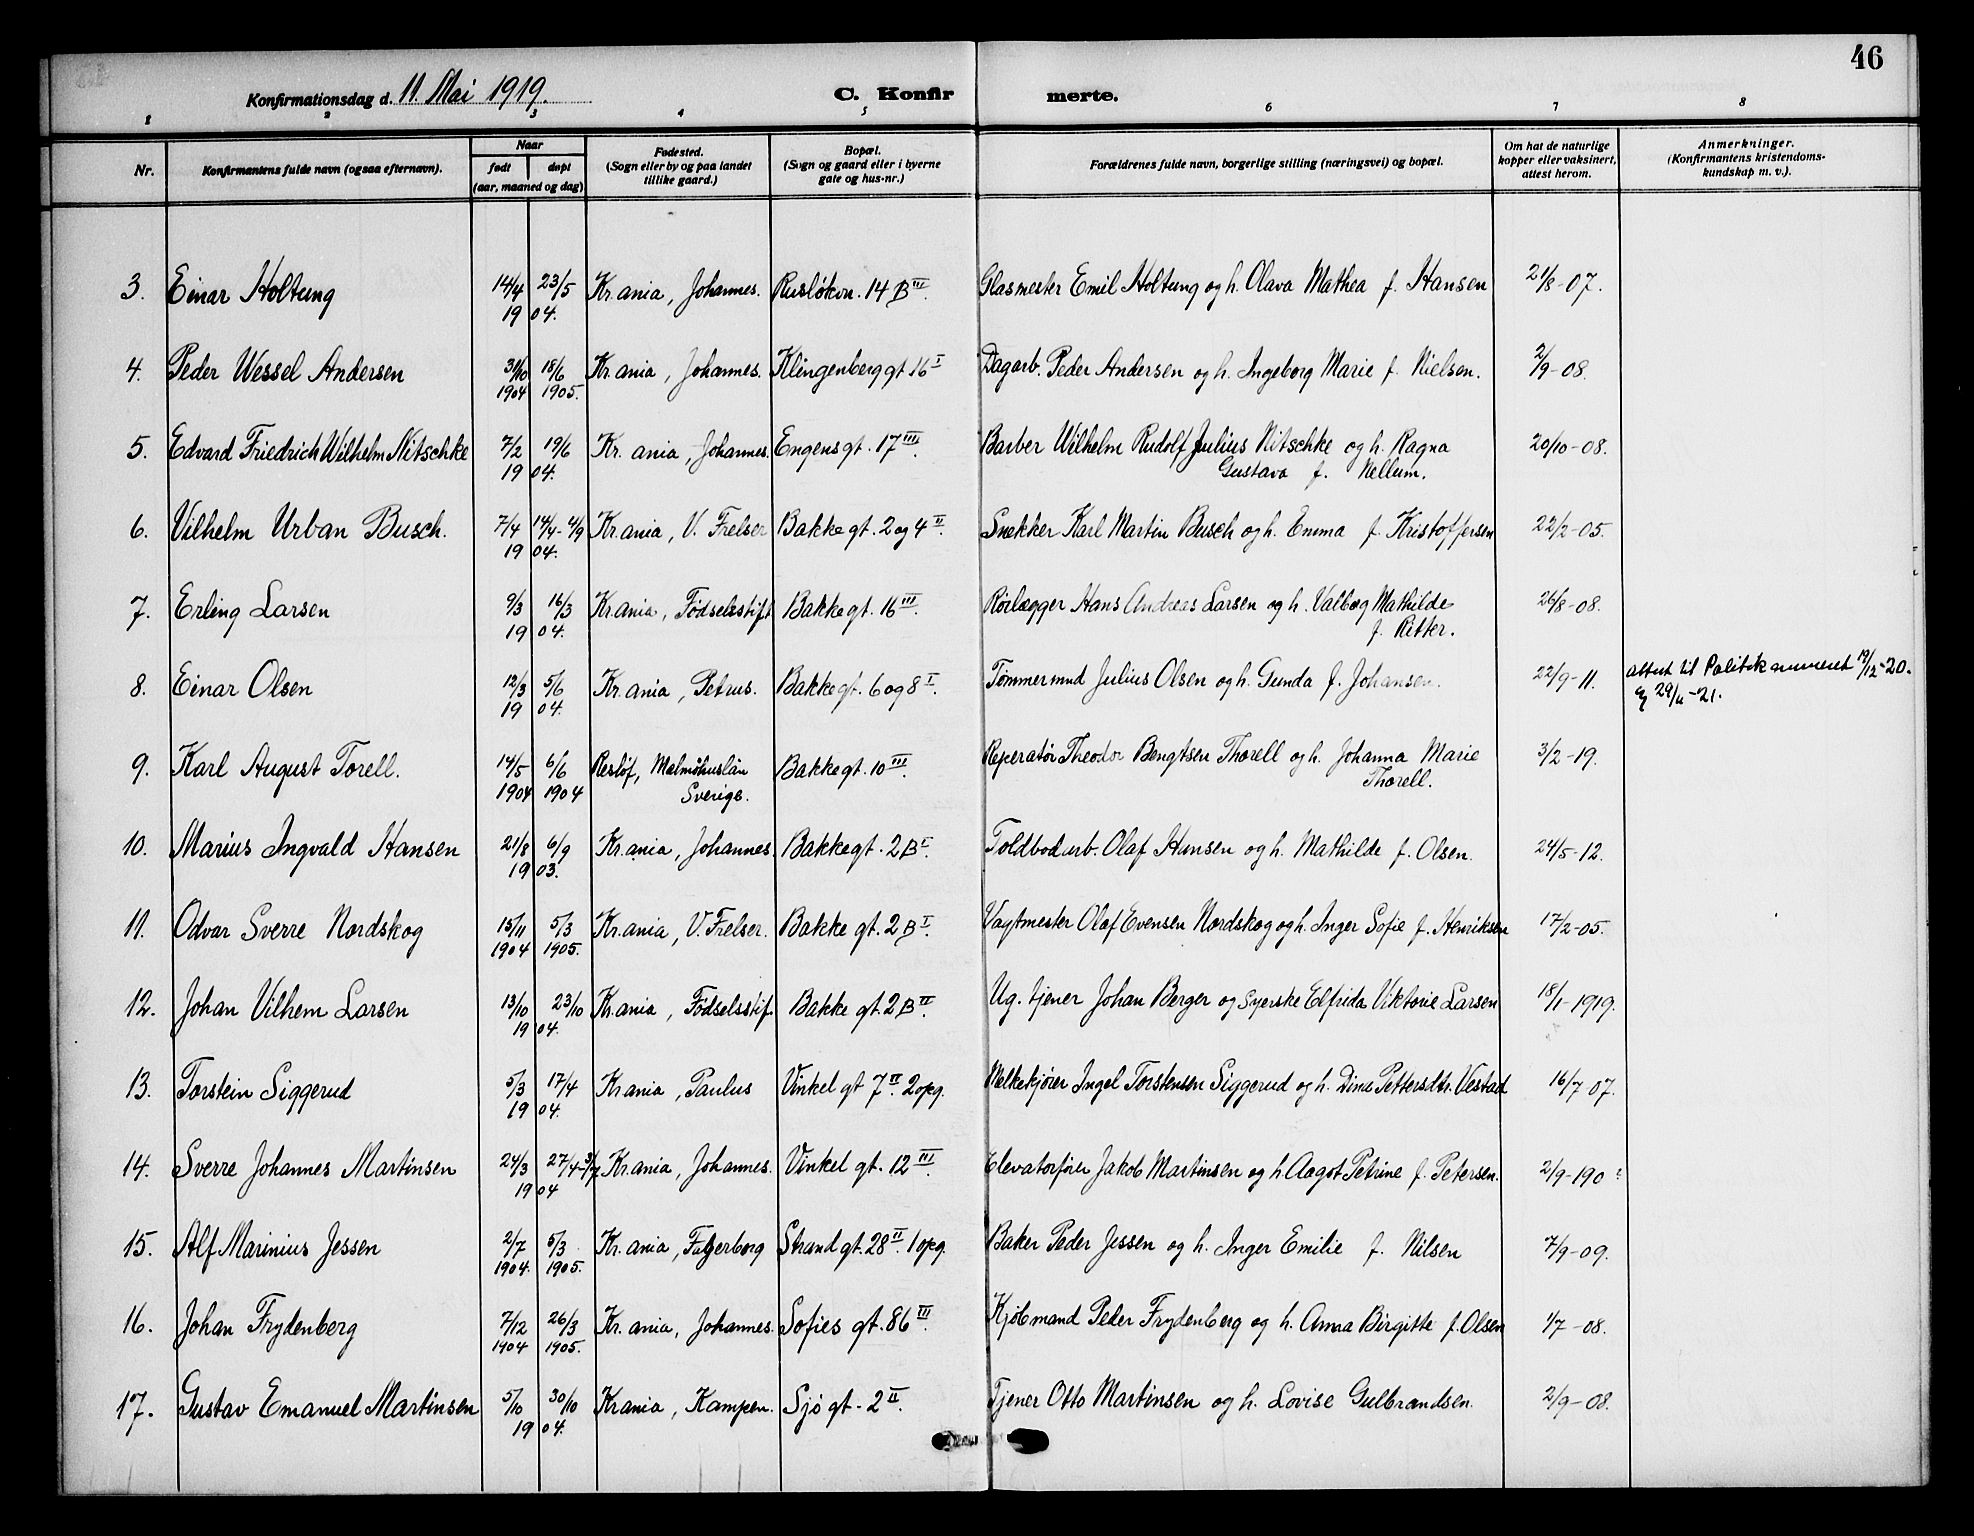 46
Konfirmationsdag d. 11 Mai 1919. C. Konfir merte.
1 2 3 4 5 6 7 8
Nr. Konfirmantens fulde navn (ogsaa efternavn). Naar født døpt (aar, maaned og dag) Fødested. (Sogn eller by og paa landet tillike gaard.) Bopæl. (Sogn og gaard eller i byerne gate og hus-nr.) Forældrenes fulde navn, borgerlige stilling (næringsvei) og bopæl. Om hat de naturlige kopper eller vaksinert, attest herom. Anmerkninger. (Konfirmantens kristendoms-kundskap m. v.).
3. Einar Holtung 14/4 23/5 Kr.ania, Johannes. Rusløkvn. 14 B III. Glasmester Emil Holtung og h. Olava Mathea f. Hansen 21/8-07.
19 04.
4. Peder Wessel Andersen 31/10 18/6 Kr.ania, Johannes. Klingenberggt 16 I Dagarb. Peder Andersen og h. Ingeborg Marie f. Nielsen. 2/9-08.
1904 1905.
5. Edvard Friedrich Wilhelm Nitschke 7/2 19/6 Kr.ania, Johannes. Engensgt. 17 III. Barber Wilhelm Rudolf Julius Nitschke og h. Ragna 20/10-08.
19 04. Gustava f. Nellum.
6. Vilhelm Urban Busch. 7/4 14/4-4/9 Kr.ania, V. Frelser Bakkegt. 2 og 4 II. Snekker Karl Martin Busch og h. Emma f. Kristoffersen 22/2-05.
19 04.
7. Erling Larsen 9/3 16/3 Kr.ania, Fødselsstift Bakkegt. 16 III. Rørlægger Hans Andreas Larsen og h. Valborg Mathilde 26/8-08.
19 04. f. Ritter.
8. Einar Olsen 12/3 5/6 Kr.ania, Petrus. Bakkegt. 6 og 8 I. Tømmermnd Julius Olsen og h. Gunda f. Johansen. 22/9-11. attest til Politikammeret 19/12-20.
19 04. 29/4-21.
9. Karl August Torell. 14/5 6/6 Reslöf, Malmöhuslän Bakkegt. 10 III. Reperatør Theodor Bengtsen Thorell og h. Johanna Marie 3/2-19.
1904 1904 Sverige. Thorell.
10. Marius Ingvald Hansen 21/8 6/9 Kr.ania, Johannes. Bakkegt. 2 B I. Toldbodarb. Olaf Hansen og h. Mathilde f. Olsen. 24/5-12.
19 03.
11. Odvar Sverre Nordskog 15/11 5/3 Kr.ania, V. Frelser. Bakke gt. 2 B I. Vagtmester Olaf Evensen Nordskog og h. Inger Sofie f. Henriksen 17/2-05.
1904 1905.
12. Johan Vilhem Larsen 13/10 23/10 Kr.ania, Fødselsstif. Bakke gt. 2 B II. Ug. tjener Johan Berger og Syerske Elfrida Viktorie Larsen 18/1-1919.
19 04.
13. Torstein Siggerud 5/3 17/4 Kr.ania, Paulus Vinkel gt 7 II. 2 opg. Melkekjører Ingel Torstensen Siggerud og h. Dina Pettersdtr. Vestad 16/7-07.
19 04.
14. Sverre Johannes Martinsen 24/3 27/4-3/7 Kr.ania, Johannes. Vinkel gt. 12 III. Elevatorfører Jakob Martinsen og h Aagot Petrine f. Petersen. 2/9-190
19 04
15. Alf Marinius Jessen 2/7 5/3 Kr.ania, Fagerborg Strand gt. 28 II. 1 opg. Baker Peder Jessen og h. Inger Emilie f. Nilsen 7/9-09.
1904. 1905.
16. Johan Frydenberg 7/12 26/3 Kr.ania, Johannes. Sofies gt. 86 III. Kjøbmand Peder Frydenberg og h. Anna Birgitte f. Olsen 1/7-08.
1904 1905.
17. Gustav Emanuel Martinsen 5/10 30/10 Kr.ania, Kampen. Sjø gt. 2 II. Tjener Otto Martinsen og h. Lovise Gulbrandsen. 2/9-08.
19 04.